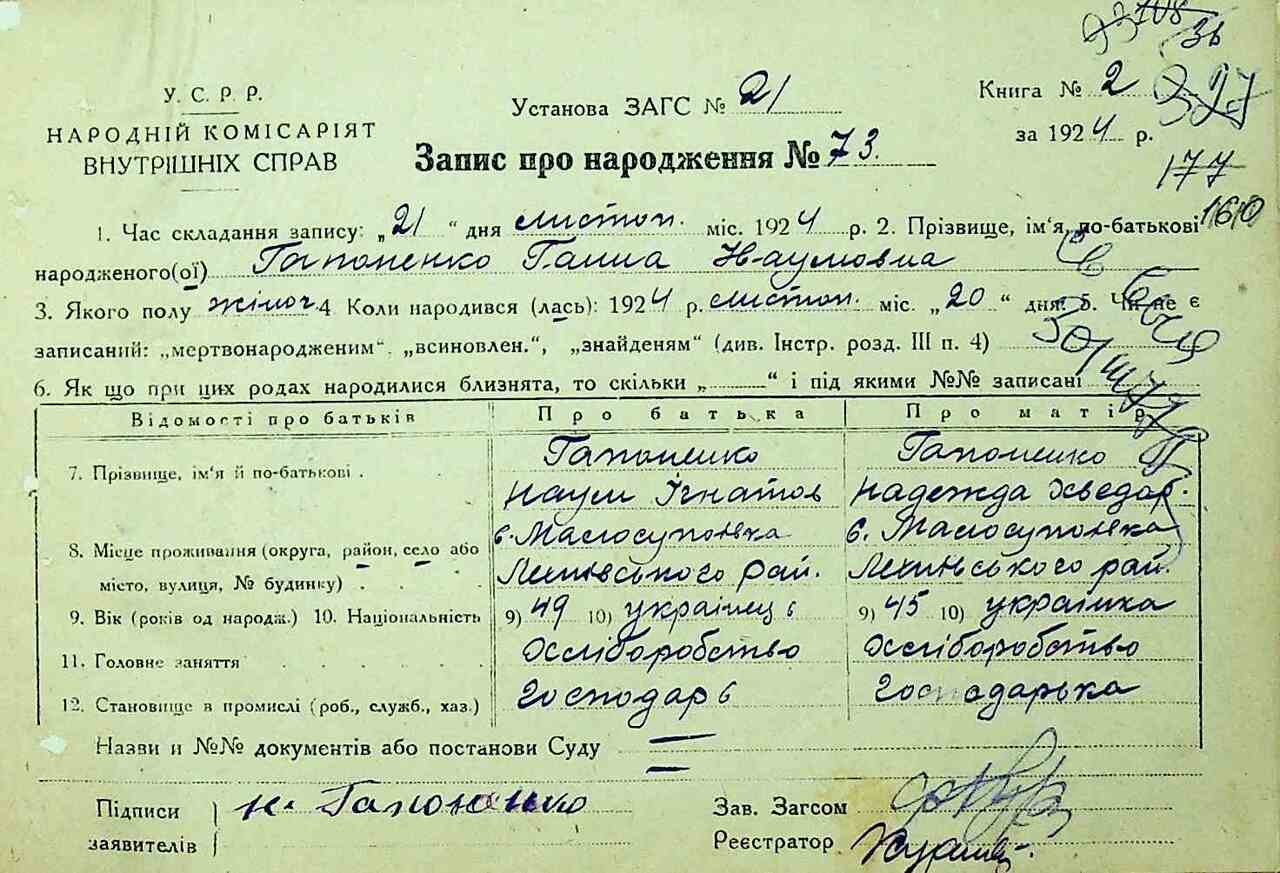 108
36
У. С. Р. Р.
НАРОДНІЙ КОМІСАРІЯТ
ВНУТРІШНІХ СПРАВ
Установа ЗАГС № 21
Запис про народження № 73.
Книга № 2
за 1924 р.
177
1610
1. Час складання запису: „21“ дня листоп. міс. 1924 р. 2. Прізвище, ім'я, по-батькові
народженого(ої) Гапоненко Ганна Наумовна
3. Якого полу жіноч. 4 Коли народився (лась): 1924 р. листоп. міс. „20“ дня: 5. Чи не є
записаний: „мертвонародженим“, „всиновлен.“, „знайденям“ (див. Інстр. розд. III п. 4)
6. Як що при цих родах народилися близнята, то скільки „ “ і під якими №№ записані
Відомості про батьків Про батька Про матір
7. Прізвище, ім'я й по-батькові . Гапоненко Гапоненко
Наум Ігнатов Надежда Хведор.
8. Місце проживання (округа, район, село або с. Малосупоївка с. Малосупоївка
місто, вулиця, № будинку) . . рай. рай.
9. Вік (років од народж.) 10. Національність 9) 49 10) українець 9) 45 10) українка
11. Головне заняття . . . . . Хліборобство Хліборобство
12. Становище в промислі (роб., служб., хаз.) господарь господарька
Назви и №№ документів або постанови Суду
Підписи
заявителів
Н. Гапоненко
Зав. Загсом
Реєстратор